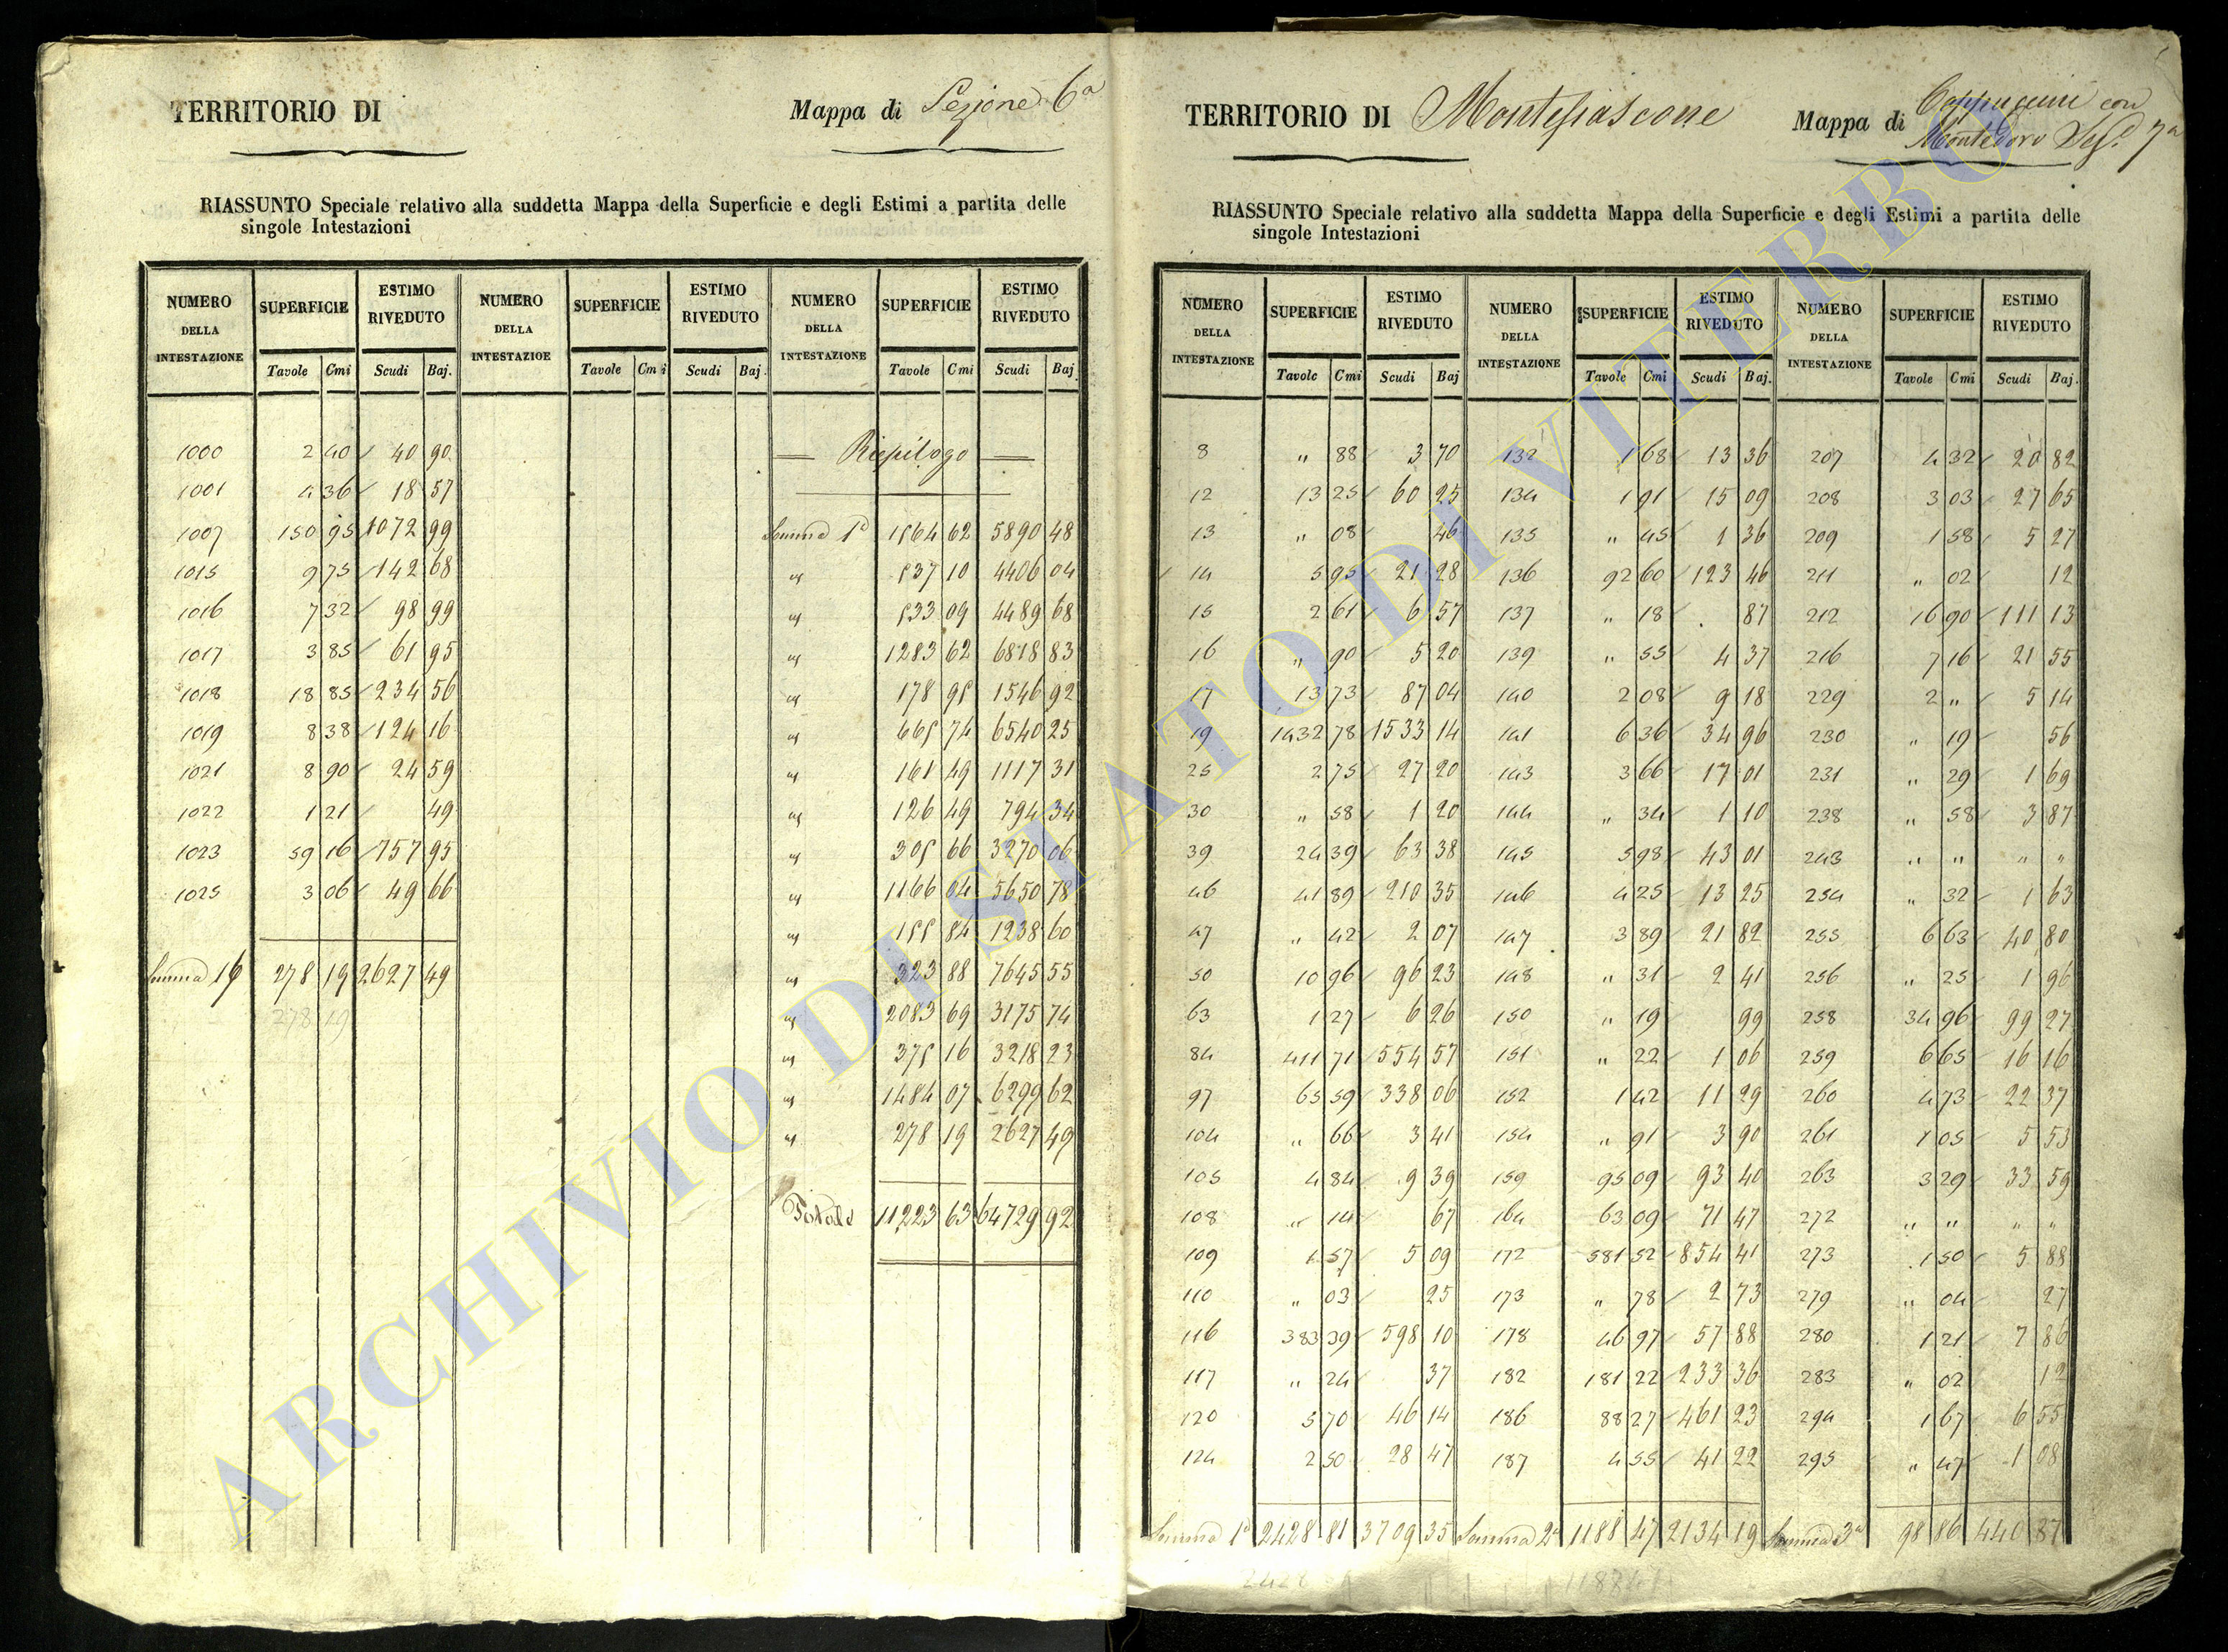 TERRITORIO DI Mappa di Sezione 6a
RIASSUNTO Speciale relativo alla suddetta Mappa della Superficie e degli Estimi a partita delle
singole Intestazioni
NUMERO DELLA INTESTAZIONE SUPERFICIE ESTIMO RIVEDUTO NUMERO DELLA INTESTAZIOE SUPERFICIE ESTIMO RIVEDUTO NUMERO DELLA INTESTAZIONE SUPERFICIE ESTIMO RIVEDUTO
Tavole Cmi Scudi Baj. Tavole Cmi Scudi Baj. Tavole Cmi Scudi Baj.
1000 2 40 40 90 Riepilogo
1001 4 36 18 57
1007 150 95 1072 99 Somma 1a 1564 62 5890 48
1015 9 75 142 68 " 537 10 4406 04
1016 7 32 98 99 " 533 09 4489 68
1017 3 85 61 95 " 1283 62 6818 83
1018 18 85 234 56 " 178 95 1546 92
1019 8 38 124 16 " 665 74 6540 25
1021 8 90 24 59 " 161 49 1117 31
1022 1 21 49 " 126 49 794 34
1023 59 16 757 95 " 305 66 3270 06
1025 3 06 49 66 " 1166 04 5650 78
" 155 84 1238 60
Somma 16 278 19 2627 49 " 323 88 7645 55
278 19 " 2083 69 3175 74
" 375 16 3218 23
" 1484 07 6299 62
" 278 19 2627 49
Totale 11223 63 64729 92
TERRITORIO DI Montefiascone Mappa di Cappuccini con
Montedoro Sez.e 7a
RIASSUNTO Speciale relativo alla suddetta Mappa della Superficie e degli Estimi a partita delle
singole Intestazioni
NUMERO DELLA INTESTAZIONE SUPERFICIE ESTIMO RIVEDUTO NUMERO DELLA INTESTAZIONE SUPERFICIE ESTIMO RIVEDUTO NUMERO DELLA INTESTAZIONE SUPERFICIE ESTIMO RIVEDUTO
Tavole Cmi Scudi Baj Tavole Cmi Scudi Baj. Tavole Cmi Scudi Baj.
8 " 88 3 70 132 1 68 13 36 207 4 32 20 82
12 13 25 60 25 134 1 91 15 09 208 3 03 27 65
13 " 08 46 135 " 45 1 36 209 1 58 5 27
14 5 95 21 28 136 92 60 123 46 211 " 02 12
15 2 61 6 57 137 " 18 87 212 16 90 111 13
16 " 90 5 20 139 " 55 4 37 216 7 16 21 55
17 13 73 87 04 140 2 08 9 18 229 2 " 5 14
19 1432 78 1533 14 141 6 36 34 96 230 " 19 56
25 2 75 27 20 143 3 66 17 01 231 " 29 1 69
30 " 58 1 20 144 " 34 1 10 238 " 58 3 87
39 24 39 63 38 145 5 98 43 01 243 " " " "
46 41 89 210 35 146 4 25 13 25 254 " 32 1 63
47 " 42 2 07 147 3 89 21 82 255 6 63 40 80
50 10 96 96 23 148 " 31 2 41 256 " 25 1 96
63 1 27 6 26 150 " 19 99 258 34 96 99 27
84 411 71 554 57 151 " 22 1 06 259 6 65 16 16
97 65 59 338 06 152 1 42 11 29 260 4 73 22 37
104 " 66 3 41 154 " 91 3 90 261 1 05 5 53
105 4 84 9 39 159 95 09 93 40 263 3 29 33 59
108 " 14 67 164 63 09 71 47 272 " " " "
109 1 57 5 09 172 581 52 854 41 273 1 50 5 88
110 " 03 25 173 " 78 2 73 279 " 04 27
116 383 39 598 10 178 46 97 57 88 280 1 21 7 86
117 " 24 37 182 181 22 233 36 283 " 02 12
120 5 70 46 14 186 88 27 461 23 294 1 67 6 55
124 2 50 28 47 187 4 55 41 22 295 " 47 1 08
Somma 1a 2428 81 3709 35 Somma 2a 1188 47 2134 19 Somma 3a 98 86 440 87
ARCHIVIO DI STATO DI VITERBO